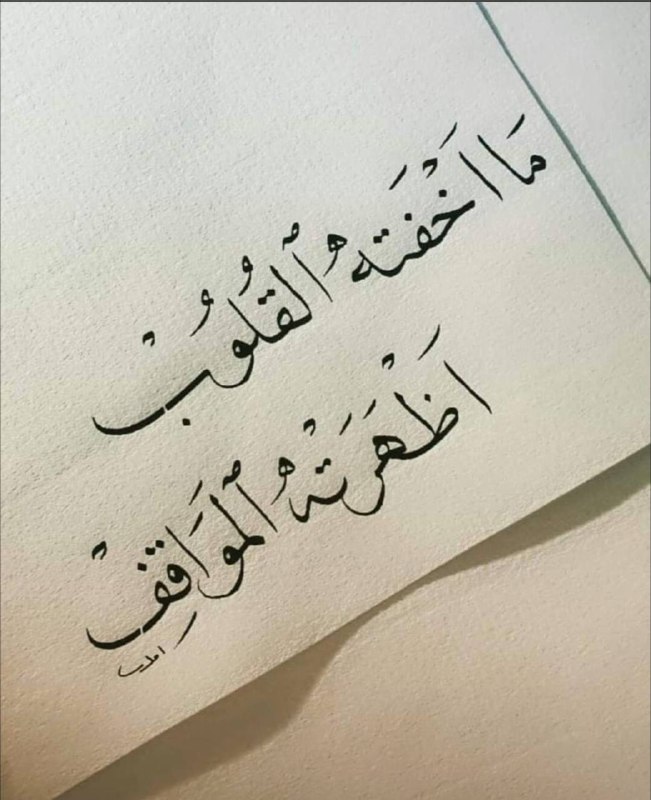 مَا اَخْفَتهُ ٱلْقُلُوبْ
اَظْهَرَتهُ ٱلْمَوَاقِفْ